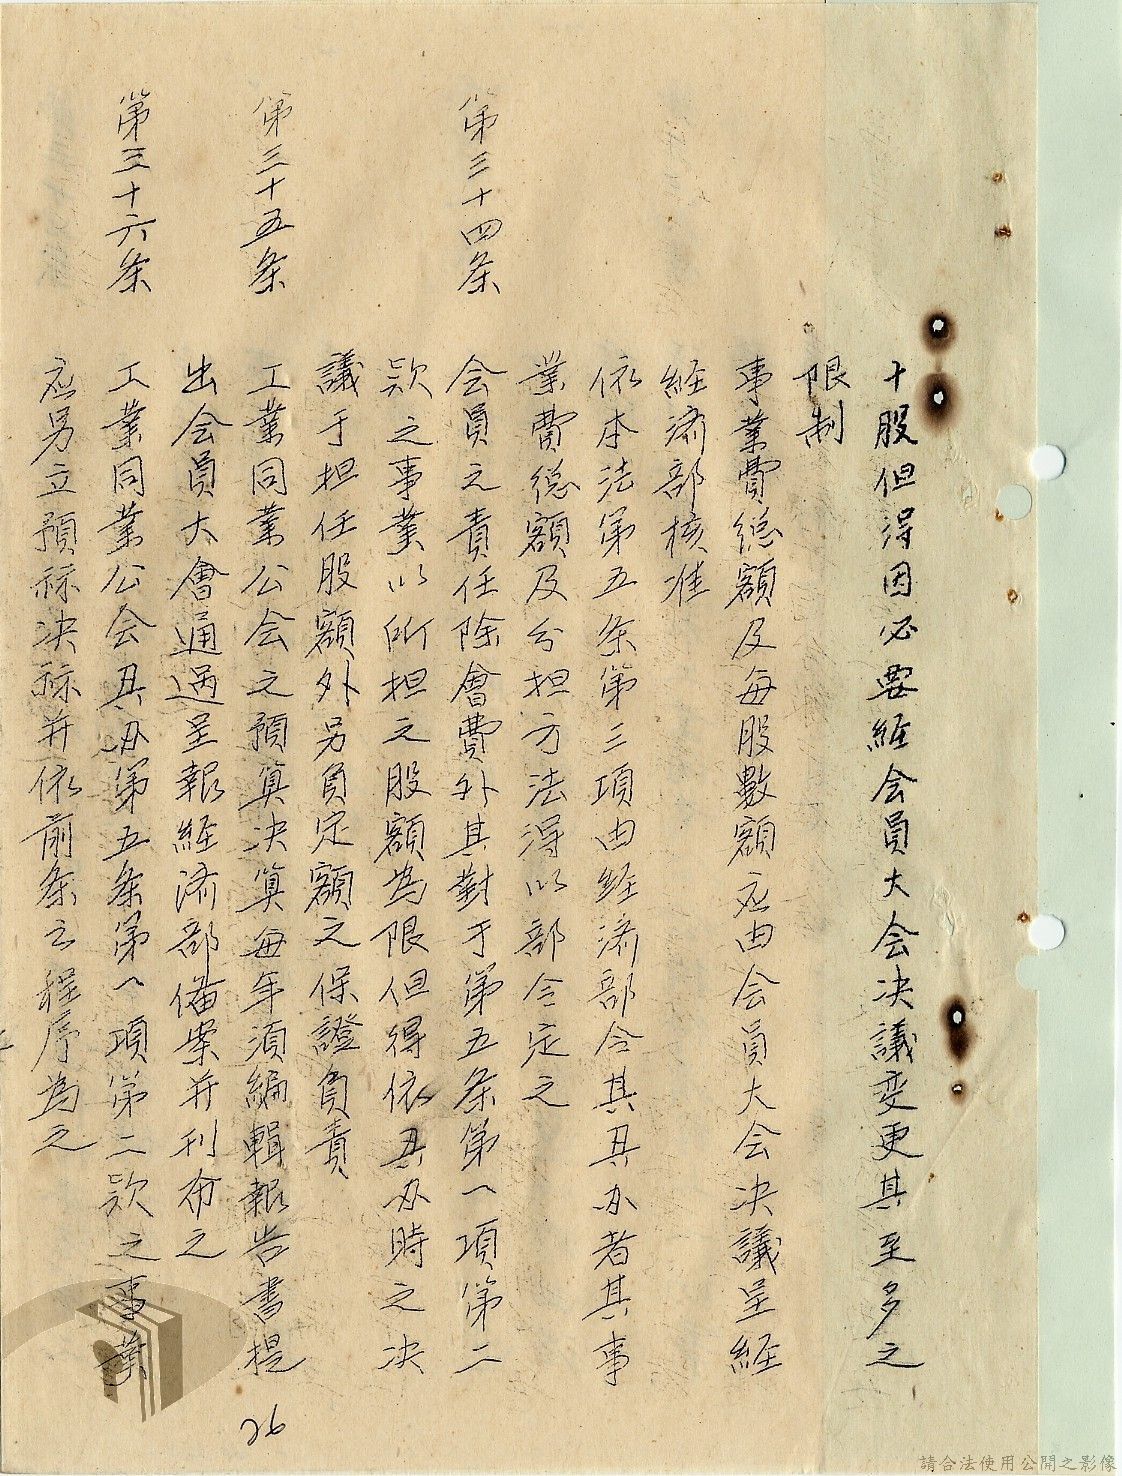 十股但得因必要經会員大会决議变更其至多之
限制
事業費総額及每股數額应由会員大会决議呈経
経済部核准
依本法第五条第三項由経済部令其具办者其事
業費総額及分担方法得以部令定之
第三十四条 会員之責任除會費外其對于第五条第一項第二
款之事業以所担之股額為限但得依具办時之决
議于担任股額外另負定額之保證負責
第三十五条 工業同業公会之預算决算每年須編輯報告書提
出会員大會通過呈報経済部備案并刊布之
第三十六条 工業同業公会具办第五条第一項第二款之事業
应另立預祘决祘并依前条之程序為之
26
請合法使用公開之影像